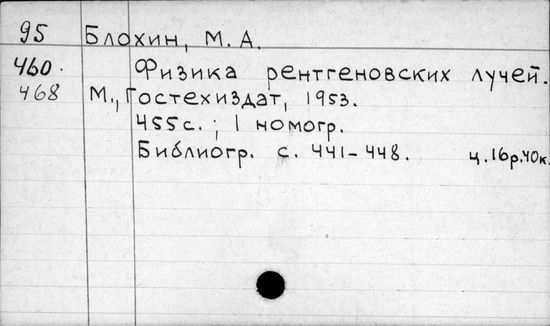 95 Блохин, М. А.
460. Физика рентгеновских лучей.
468 М., Гостехиздат, 1953.
455 с. ; 1 номогр.
Библиогр. с. 441-448. ц. 16 р. 40 к.